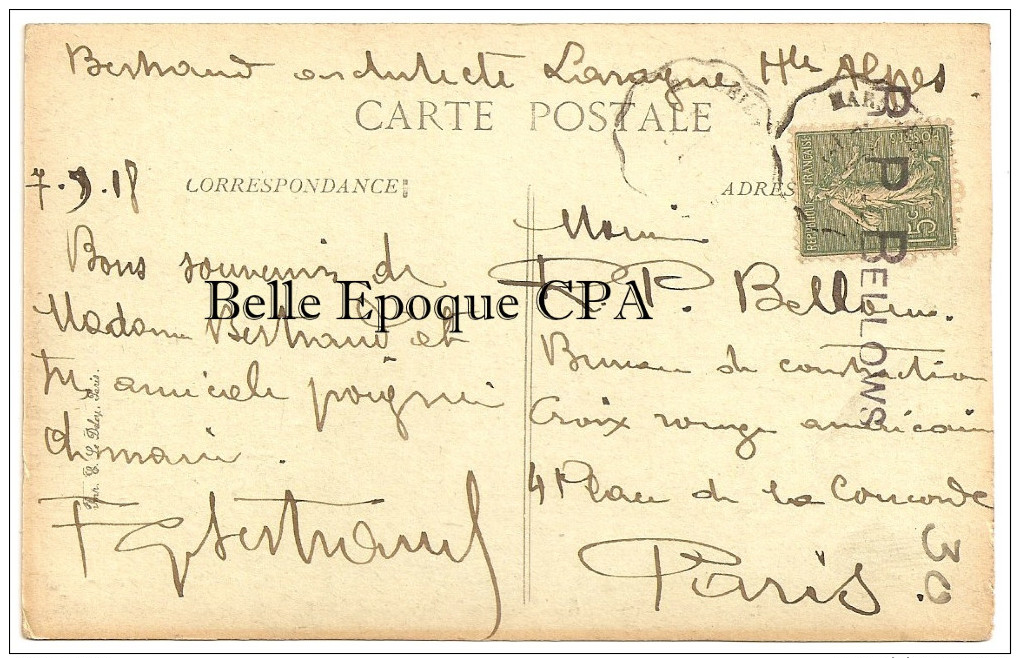 Bertrand architecte Laragne Htes Alpes
CARTE POSTALE
7.9.18
CORRESPONDANCE
ADRES
Bons souvenirs de
Madame Bertrand et
amicale poignée
de main.
Bertrand
Imp. E. Le Deley, Paris.
Belle Epoque CPA
Monsieur
R. P. Bellows.
Bureau de construction
Croix rouge américaine
4 Place de la Concorde
Paris
REPUBLIQUE FRANÇAISE
POSTES
15c
B P BELLOWS
30.